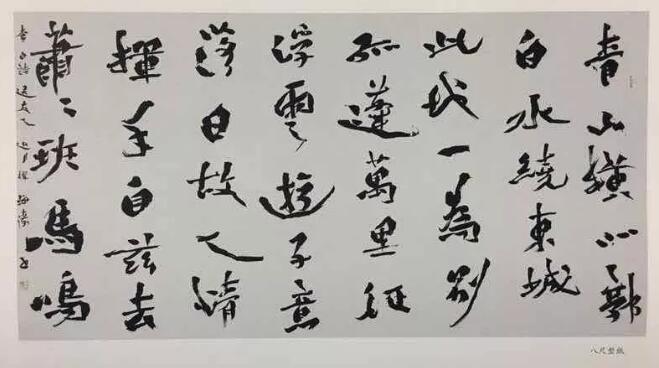 青山橫北郭
白水繞東城
此地一為別
孤蓬萬里征
浮雲遊子意
落日故人情
揮手自茲去
蕭〻班馬鳴
李白詩送友人
八尺整紙